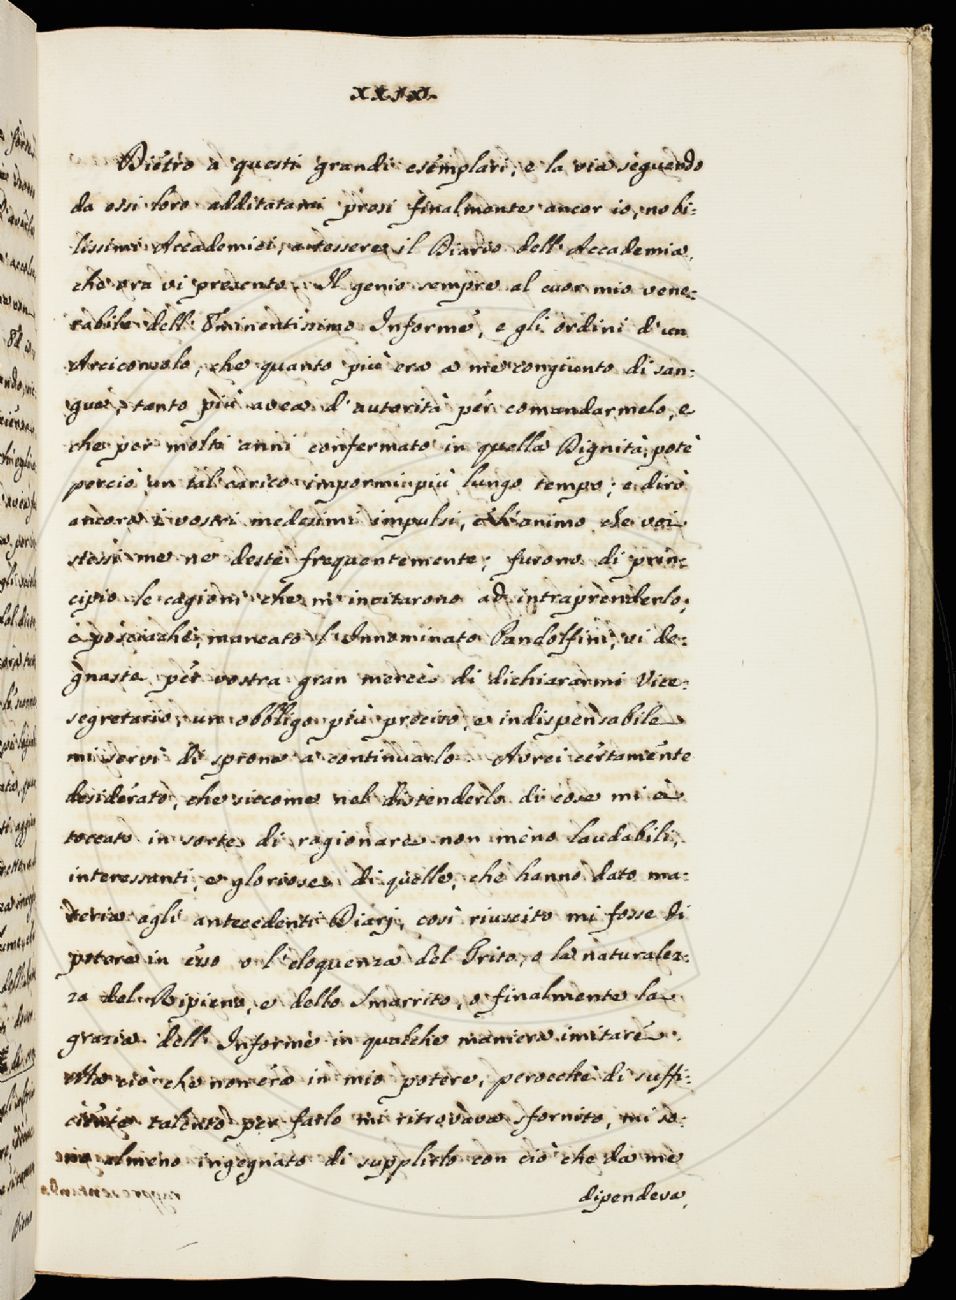 XXIX.
Dietro a questi grandi esemplari, e la via seguendo
da essi loro additatami presi finalmente ancor io, nobi-
lissimi Accademici, a tessere il Diario dell'Accademia,
che ora vi presento. Il genio sempre al cuor mio vene-
rabile dell'Eminentissimo Informe, e gli ordini d'un
Arciconsolo, che quanto più era a me congiunto di san-
gue, tanto più avea d'autorità per comandarmelo, e
che per molti anni confermato in quella Dignità, potè
perciò un tal carico impormi più lungo tempo; e dirò
ancora i vostri medesimi impulsi, e l'animo che voi
stessi me ne deste frequentemente; furono di prin-
cipio le cagioni che m'incitarono ad intraprenderlo;
e posciachè, mancato l'Innominato Pandolfini, vi de-
gnaste per vostra gran mercè di dichiararmi Vice-
segretario, un obbligo più preciso, e indispensabile
mi servì di sprone a continuarlo. Avrei certamente
desiderato, che siccome nel distenderlo di cose mi è
toccato in sorte di ragionare non meno laudabili,
interessanti, e gloriose di quelle, che hanno dato ma-
teria agli antecedenti Diarj, così riuscito mi fosse di
potere in esso o l'eloquenza del Trito, o la naturalez-
za del Ripieno, e dello Smarrito, o finalmente la
grazia dell'Informe in qualche maniera imitare.
Ma ciò che non era in mio potere, perocchè di suffi-
ciente talento per farlo mi ritrovava sfornito, mi so-
no almeno ingegnato di supplirlo con ciò che da me
dipendeva,